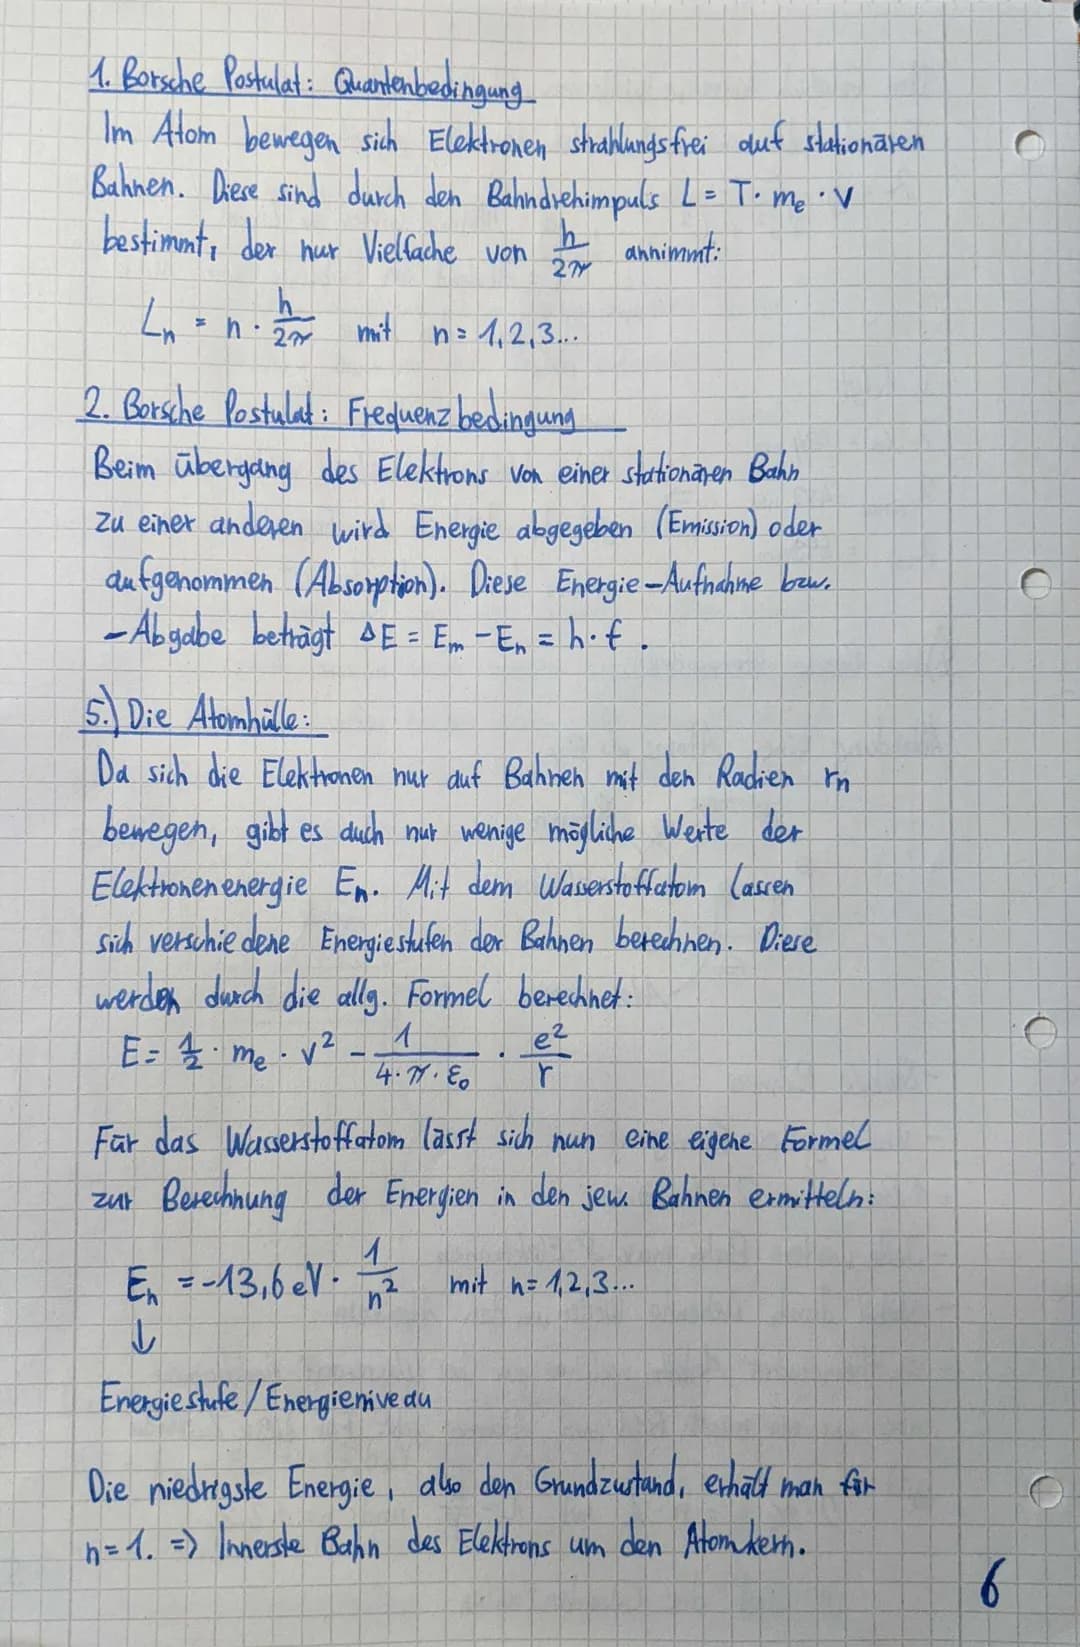 1. Borsche Postulat: Quantenbedingung
Im Atom bewegen sich Elektronen strahlungsfrei auf stationären
Bahnen. Diese sind durch den Bahndrehimpuls L = r · mₑ · v
bestimmt, der nur Vielfache von h/2π annimmt:
Lₙ = n · h/2π mit n = 1,2,3...
2. Borsche Postulat: Frequenzbedingung
Beim Übergang des Elektrons von einer stationären Bahn
zu einer anderen wird Energie abgegeben (Emission) oder
aufgenommen (Absorption). Diese Energie-Aufnahme bzw.
-Abgabe beträgt ΔE = Eₘ - Eₙ = h · f .
5.) Die Atomhülle:
Da sich die Elektronen nur auf Bahnen mit den Radien rₙ
bewegen, gibt es auch nur wenige mögliche Werte der
Elektronenenergie Eₙ. Mit dem Wasserstoffatom lassen
sich verschiedene Energiestufen der Bahnen berechnen. Diese
werden durch die allg. Formel berechnet:
E = 1/2 · mₑ · v² - 1/(4 · π · ε₀) · e²/r
Für das Wasserstoffatom lässt sich nun eine eigene Formel
zur Berechnung der Energien in den jew. Bahnen ermitteln:
Eₙ = -13,6 eV · 1/n² mit n = 1,2,3...
↓
Energiestufe/Energieniveau
Die niedrigste Energie, also den Grundzustand, erhält man für
n = 1. => Innerste Bahn des Elektrons um den Atomkern.
6